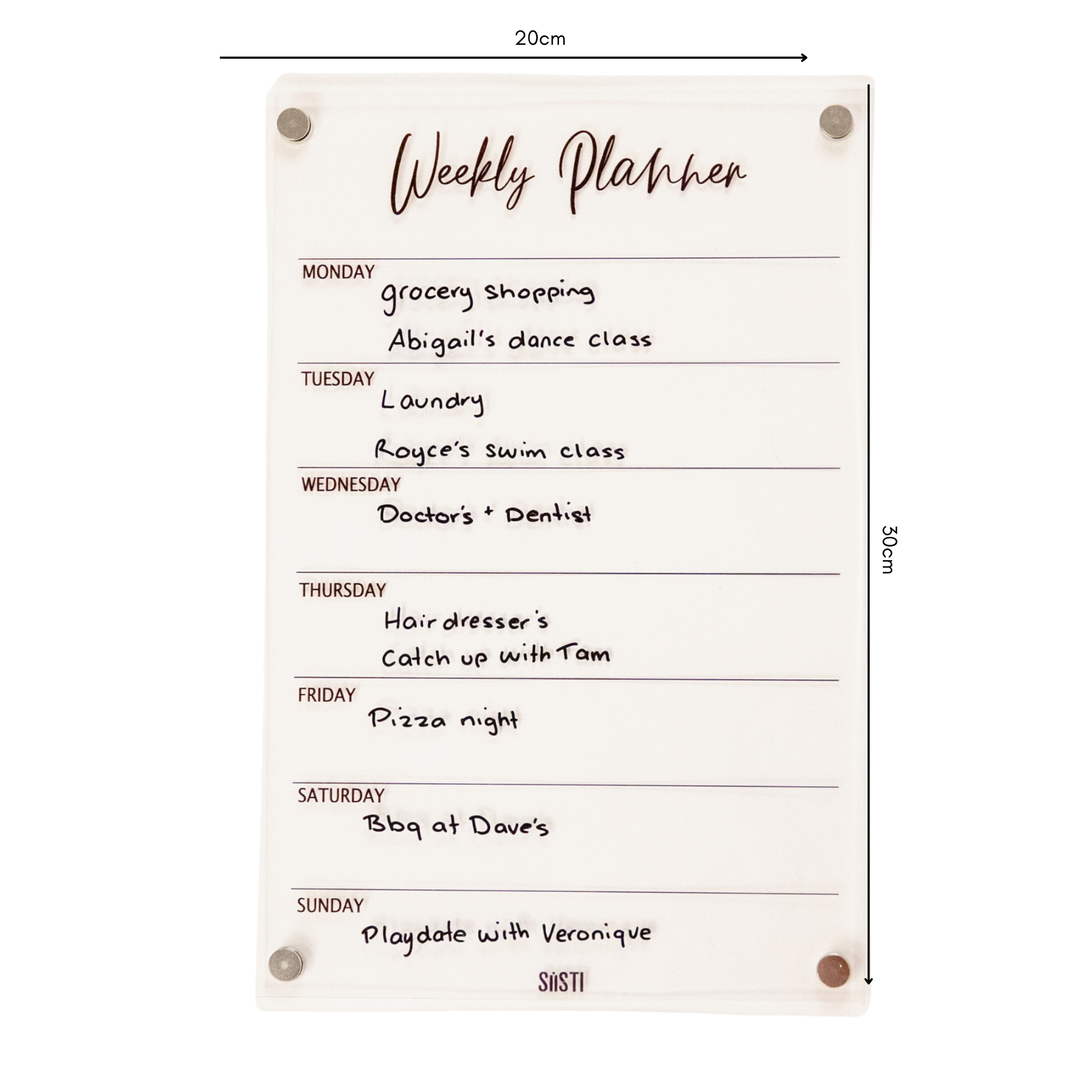 20cm
Weekly Planner
MONDAY
grocery shopping
Abigail's dance class
TUESDAY
Laundry
Royce's swim class
WEDNESDAY
Doctor's + Dentist
THURSDAY
Hairdresser's
Catch up with Tam
30cm
FRIDAY
Pizza night
SATURDAY
Bbq at Dave's
SUNDAY
Playdate with Veronique
SiiSTI